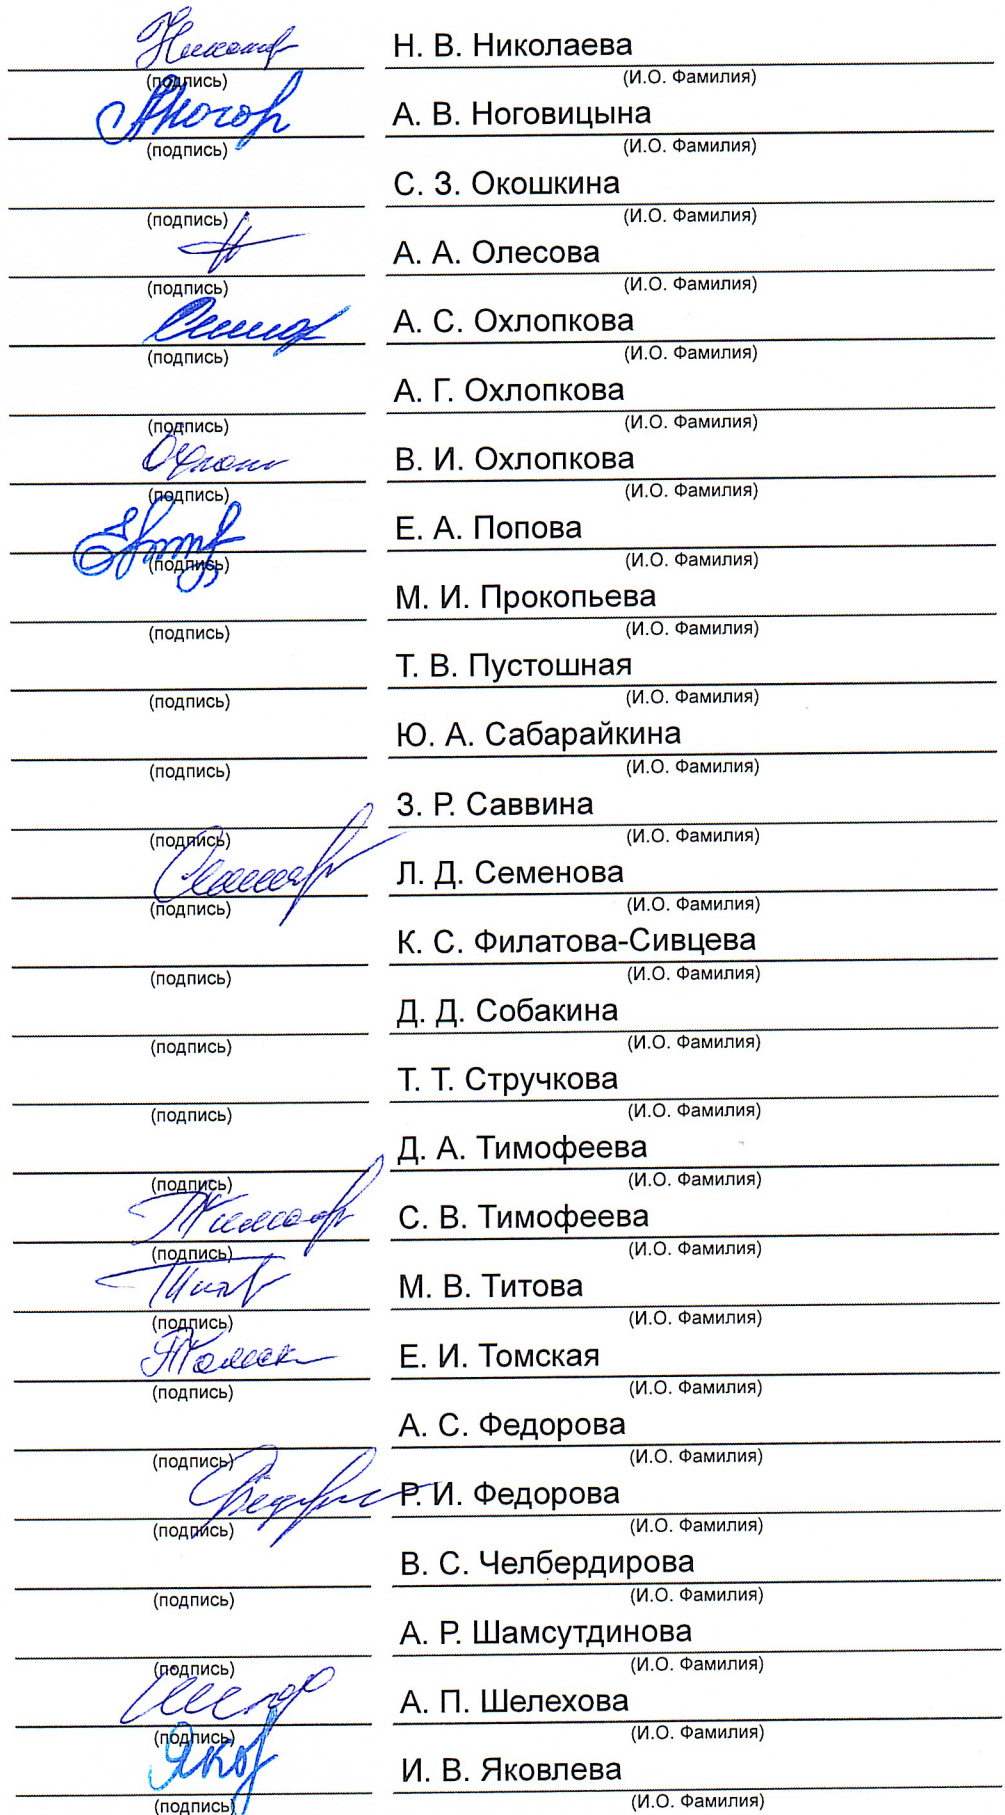 Н. В. Николаева
(подпись) (И.О. Фамилия)
А. В. Ноговицына
(подпись) (И.О. Фамилия)
С. З. Окошкина
(подпись) (И.О. Фамилия)
А. А. Олесова
(подпись) (И.О. Фамилия)
А. С. Охлопкова
(подпись) (И.О. Фамилия)
А. Г. Охлопкова
(подпись) (И.О. Фамилия)
В. И. Охлопкова
(подпись) (И.О. Фамилия)
Е. А. Попова
(подпись) (И.О. Фамилия)
М. И. Прокопьева
(подпись) (И.О. Фамилия)
Т. В. Пустошная
(подпись) (И.О. Фамилия)
Ю. А. Сабарайкина
(подпись) (И.О. Фамилия)
З. Р. Саввина
(подпись) (И.О. Фамилия)
Л. Д. Семенова
(подпись) (И.О. Фамилия)
К. С. Филатова-Сивцева
(подпись) (И.О. Фамилия)
Д. Д. Собакина
(подпись) (И.О. Фамилия)
Т. Т. Стручкова
(подпись) (И.О. Фамилия)
Д. А. Тимофеева
(подпись) (И.О. Фамилия)
С. В. Тимофеева
(подпись) (И.О. Фамилия)
М. В. Титова
(подпись) (И.О. Фамилия)
Е. И. Томская
(подпись) (И.О. Фамилия)
А. С. Федорова
(подпись) (И.О. Фамилия)
Р. И. Федорова
(подпись) (И.О. Фамилия)
В. С. Челбердирова
(подпись) (И.О. Фамилия)
А. Р. Шамсутдинова
(подпись) (И.О. Фамилия)
А. П. Шелехова
(подпись) (И.О. Фамилия)
И. В. Яковлева
(подпись) (И.О. Фамилия)